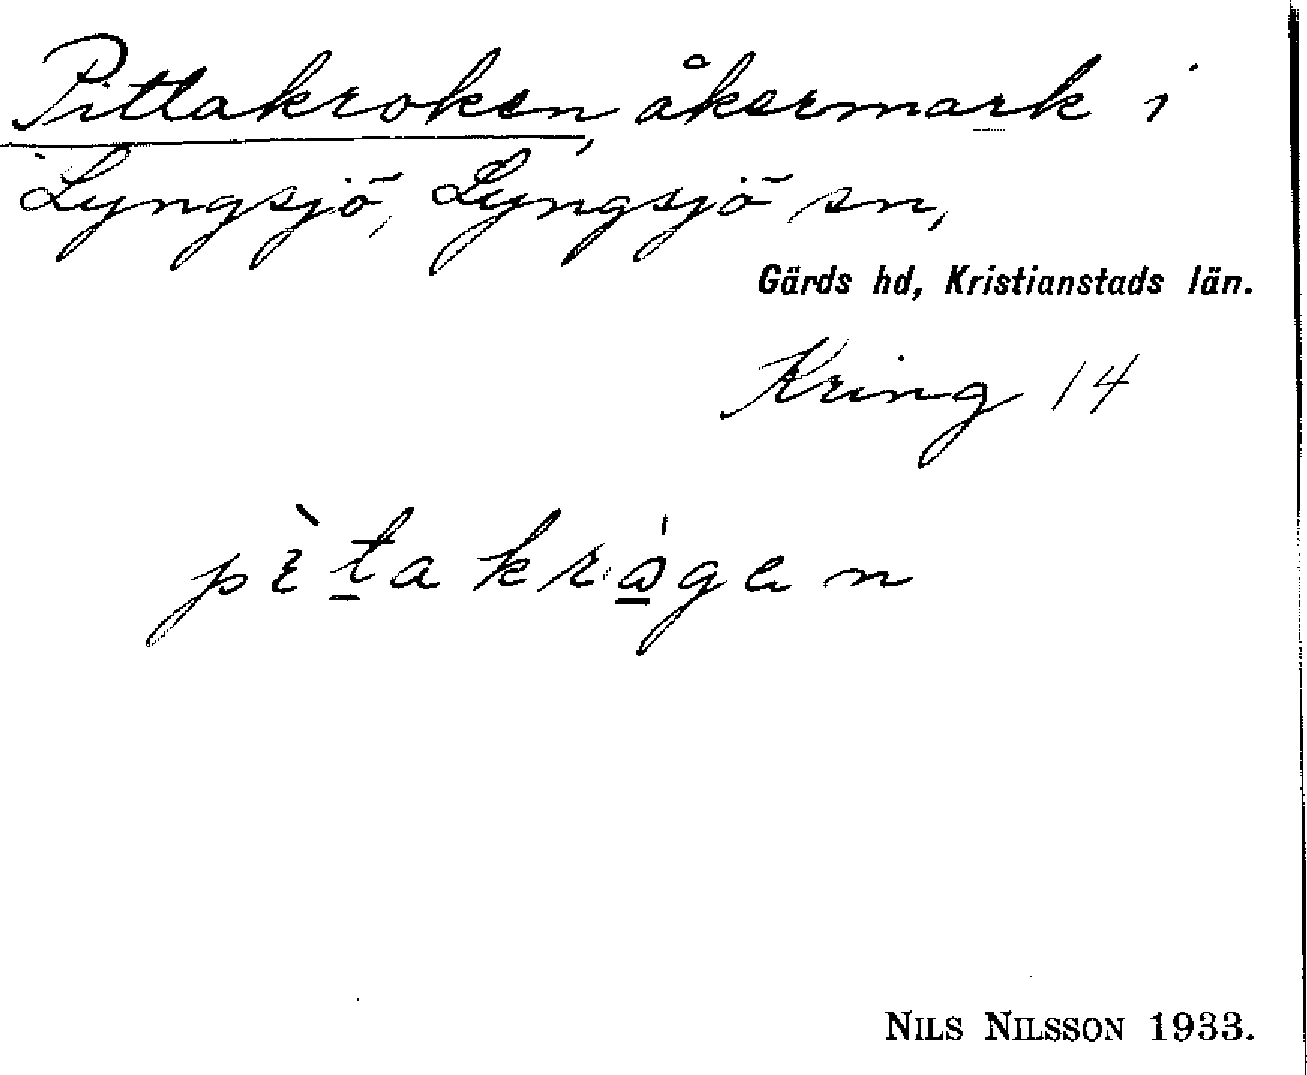 Pittakroken, åkermark i
Lyngsjö, Lyngsjö sn,
Gärds hd, Kristianstads län.
Kring 14
pìtakrågen
NILS NILSSON 1933.